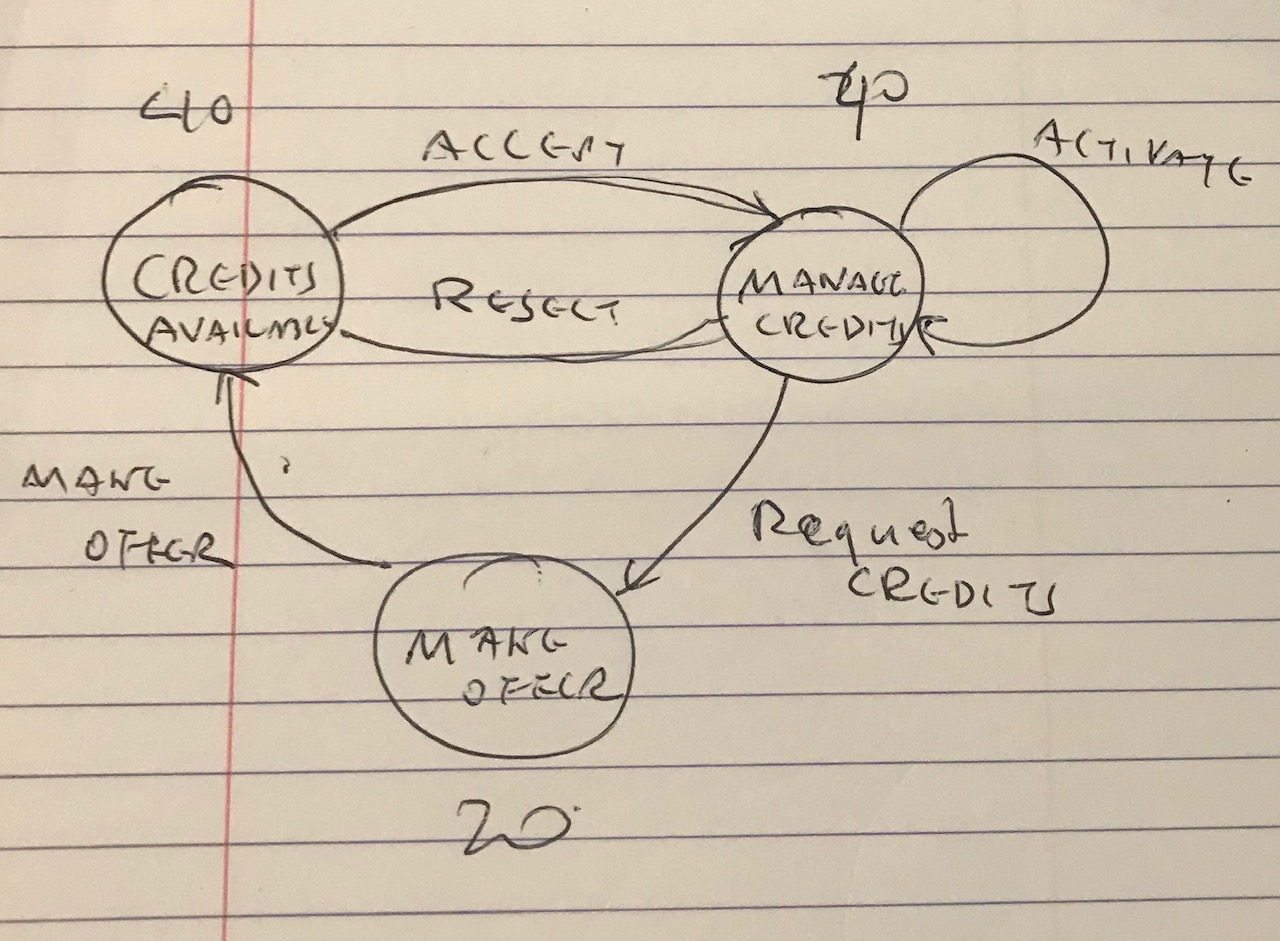 ACCEPT
ACTIVATE
CREDITS
AVAILABLE
REJECT
MANAGE
CREDITS
MAKE
OFFER
Request
CREDITS
MAKE
OFFER
20